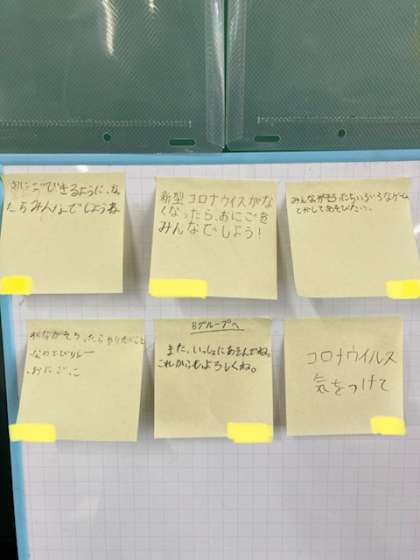 おにごができるように、なっ
たらみんなでしようね
新型コロナウイスがな
くなったら、おにごを
みんなでしよう!
みんながそろったらいろいろなゲーム
とかしてあそびたい。
そろったらやりたいこと
おにごっこ
Bグループへ
また、いっしょにあそんでね。
これからもよろしくね。
コロナウイルス
気をつけて